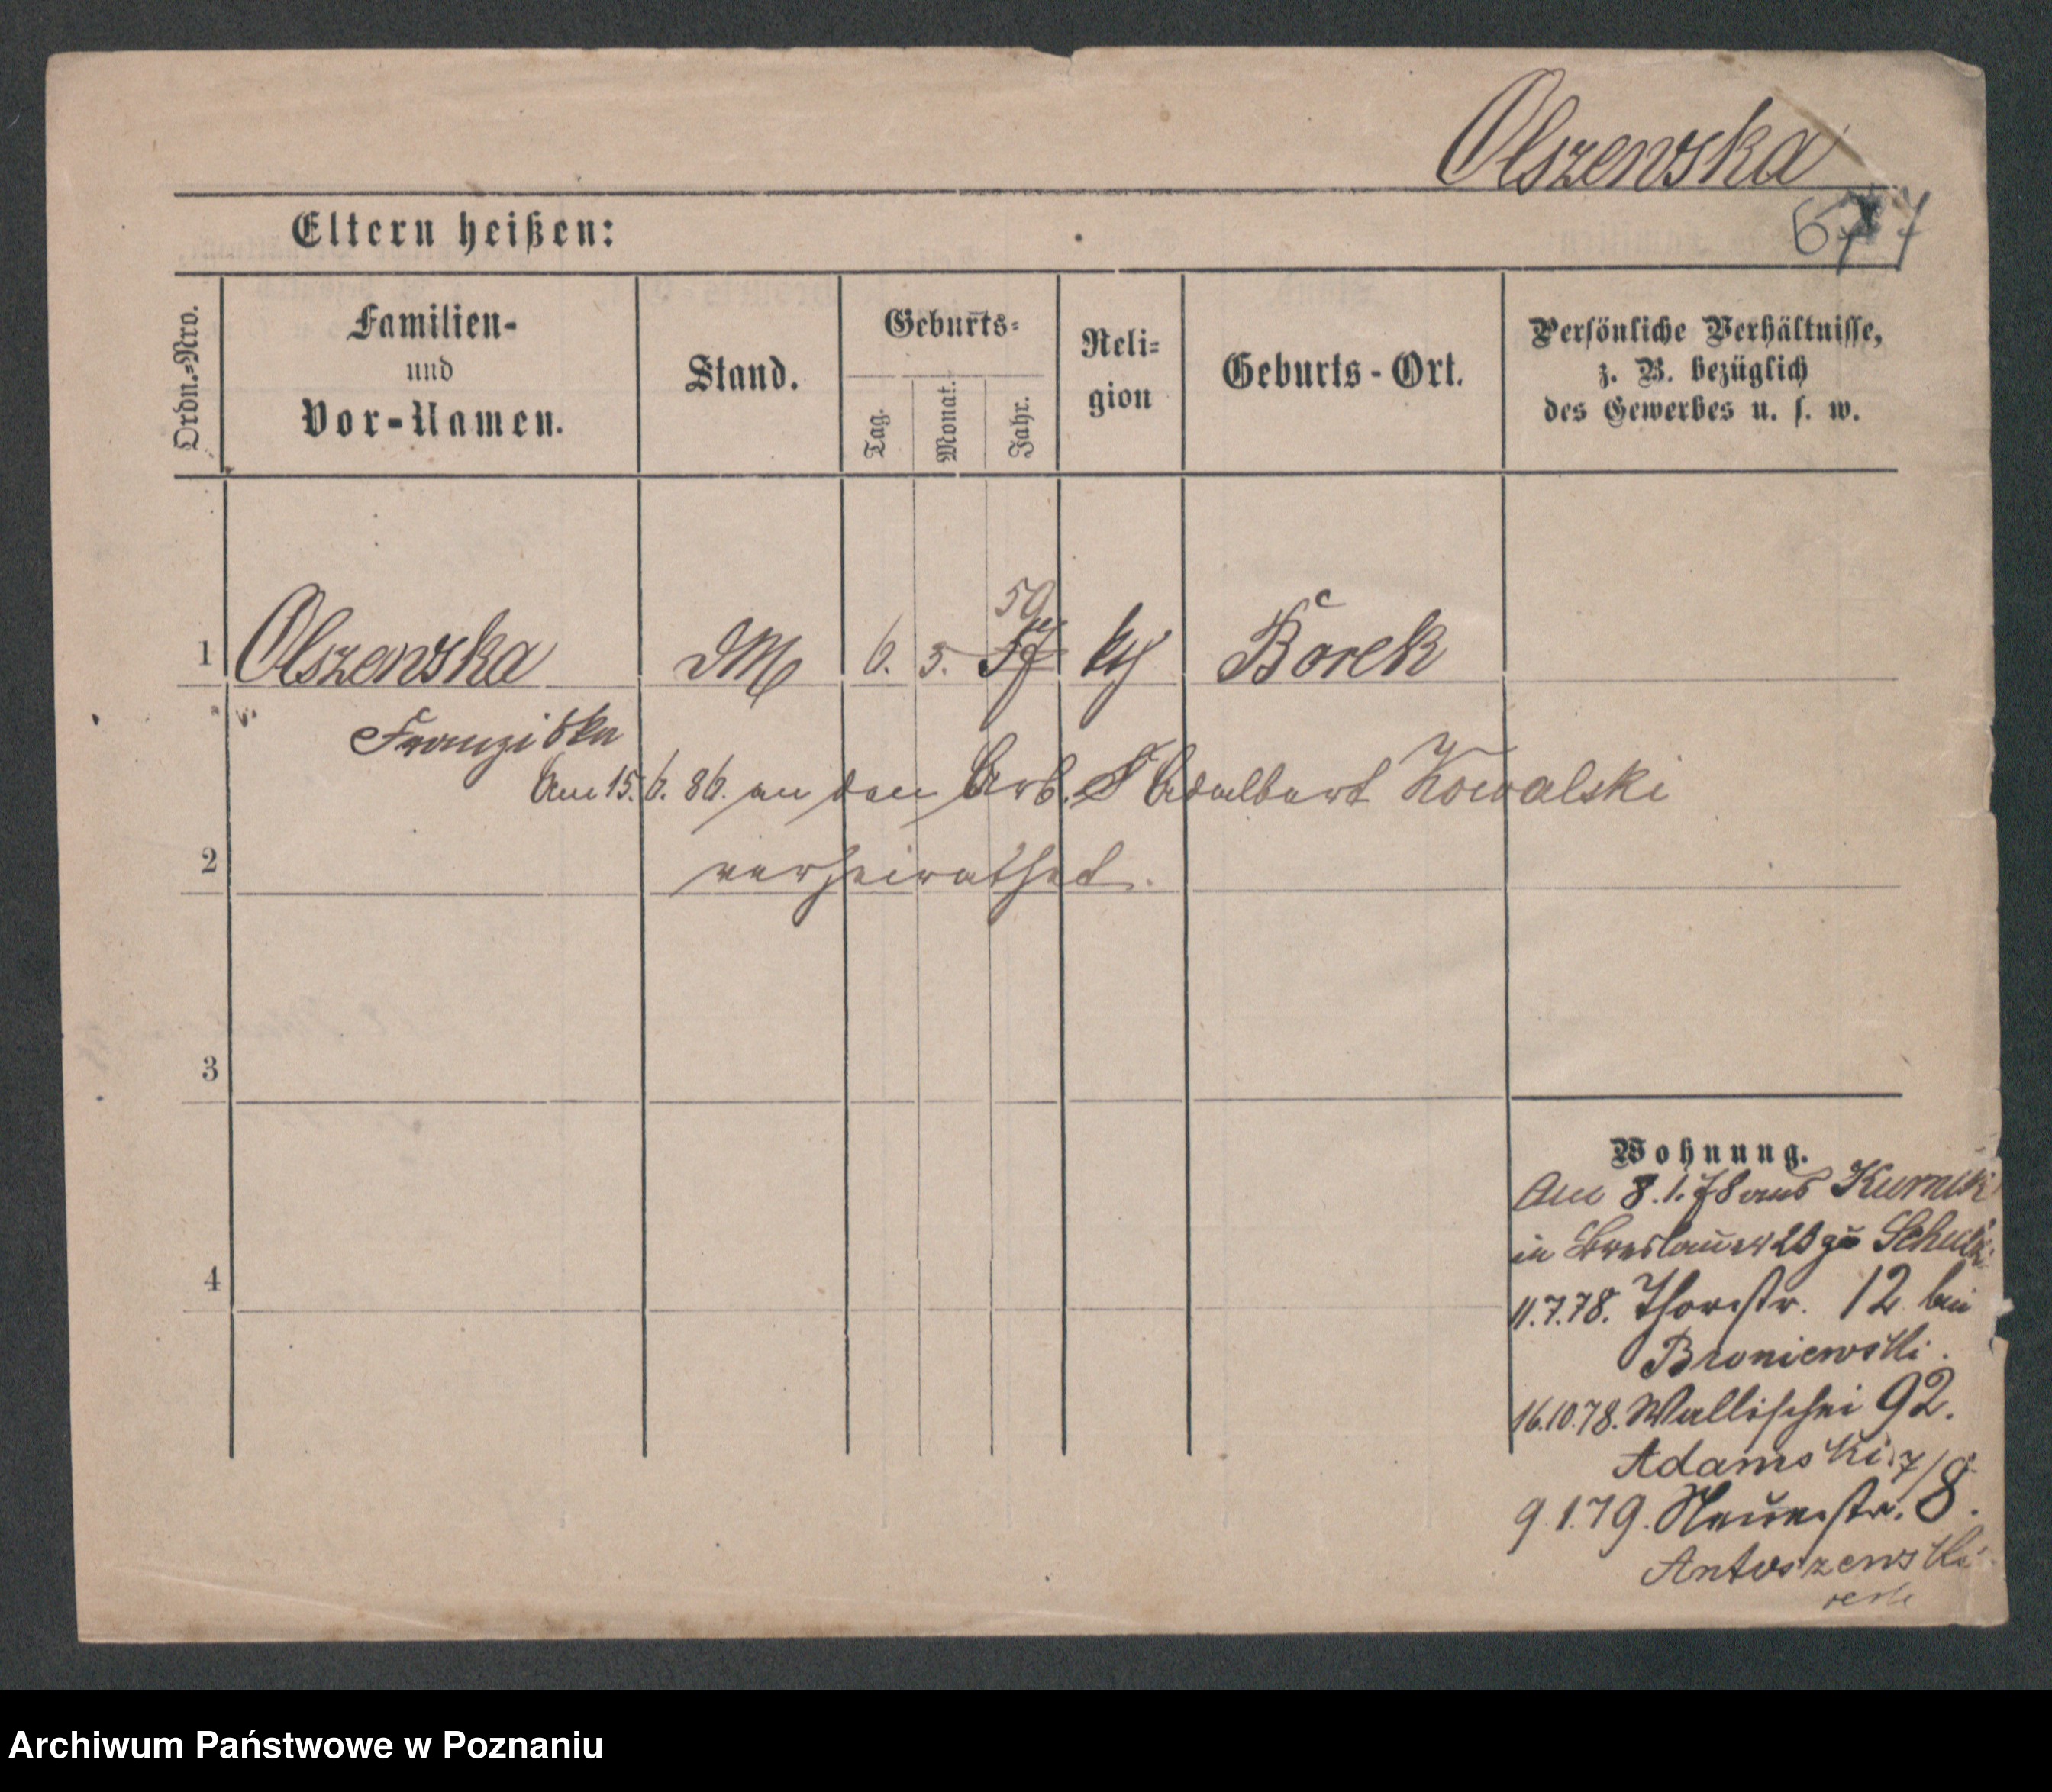 Olszewska
Eltern heißen:
Ordn.-Nro.
Familien-
und
Vor-Namen.
Stand.
Geburts-
Tag.
Monat.
Jahr.
Reli-
gion
Geburts-Ort.
Persönliche Verhältnisse,
z. B. bezüglich
des Gewerbes u. s. w.
59
1 Olszewska M 6. 5. 57 k Borek
Franziska
Am 15. 6. 86. an den Arb. Adalbert Kowalski
verheirathet.
2
3
4
Wohnung.
Am 8. 1. 78 aus Kurnik
in Breslauer 20 zu
11.7.78. Thorstr. 12 bei
Broniewski.
16.10.78. Wallischei 92.
Adamski
9.1.79. Neuestr. 7/8.
Antoszewski
Archiwum Państwowe w Poznaniu